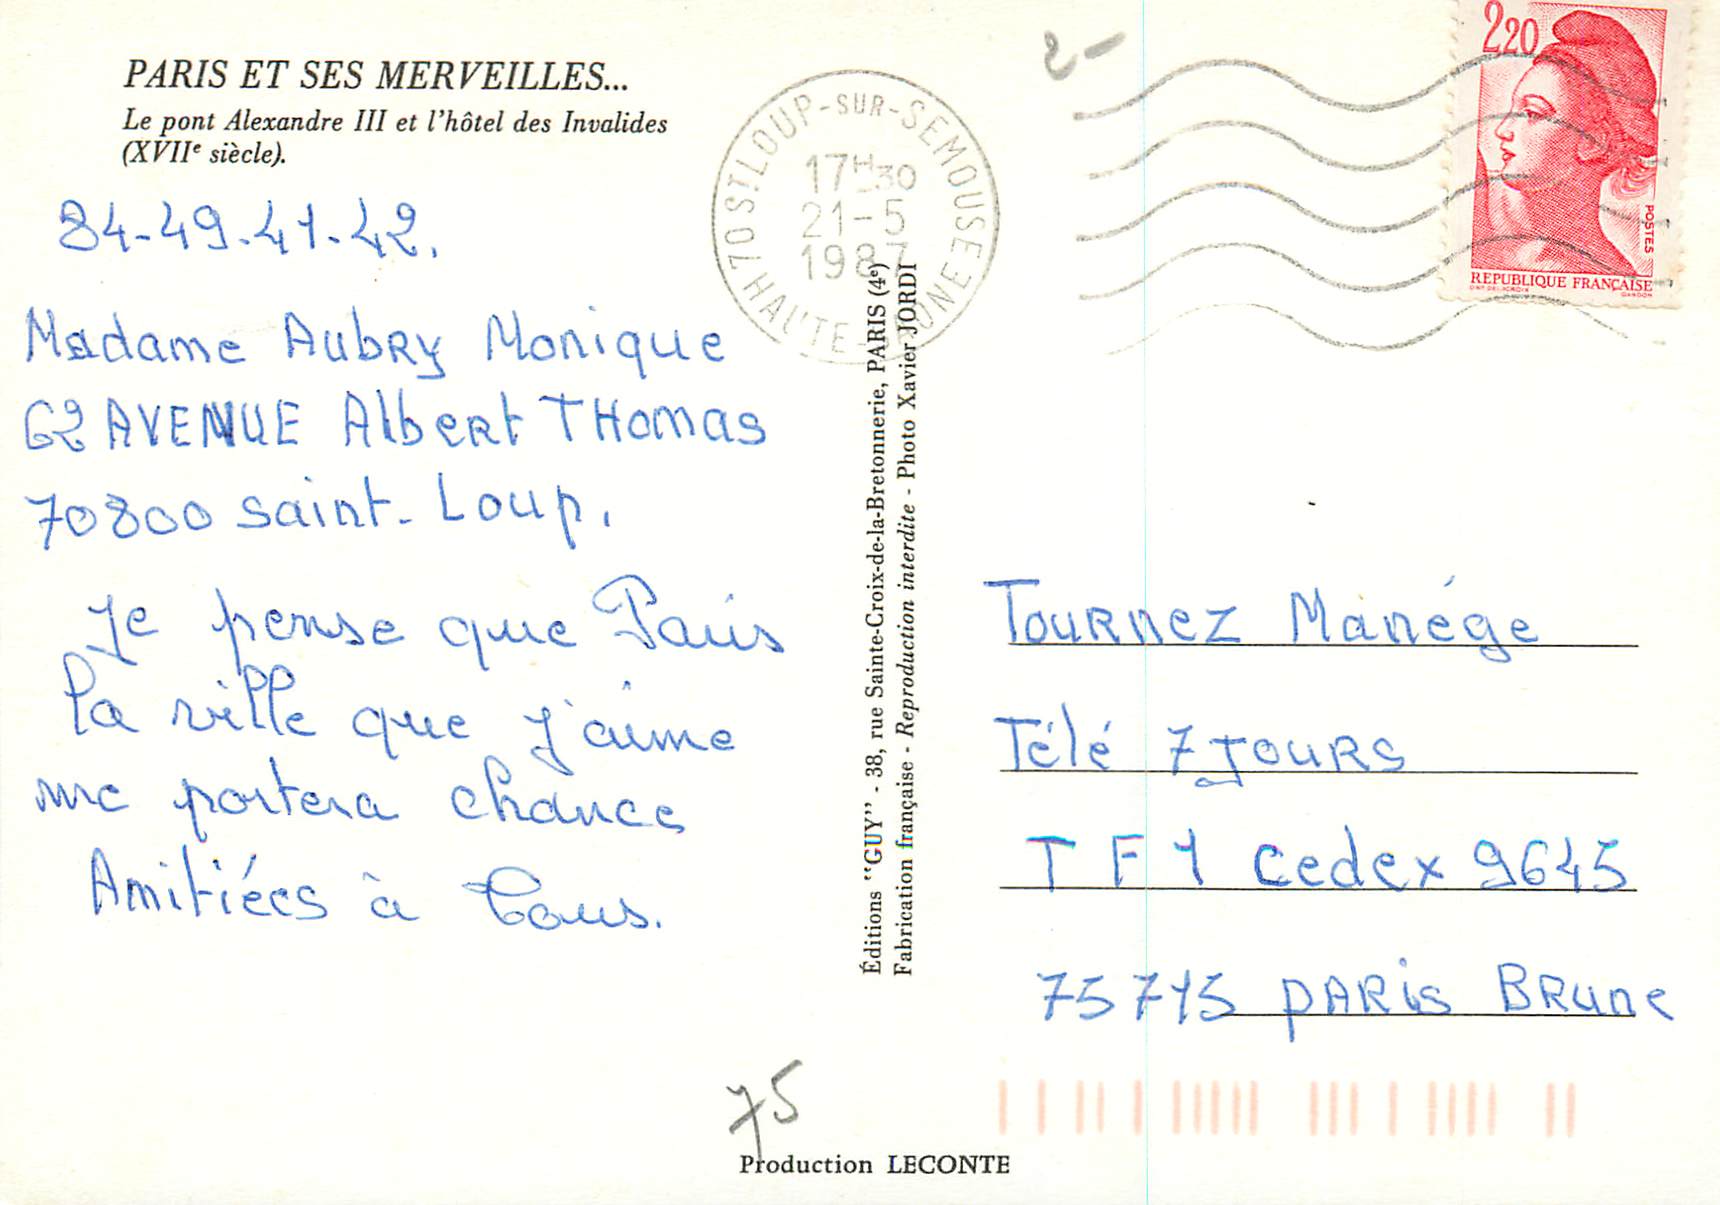 PARIS ET SES MERVEILLES...
Le pont Alexandre III et l'hôtel des Invalides
(XVIIe siècle).
84-49.41-42.
Madame Aubry Monique
62 AVENUE Albert THomas
70800 saint-Loup.
Je pense que Paris
la ville que j'aime
me portera chance
Amitiées à Tous.
70 ST LOUP-SUR-SEMOUSE
17H30
21-5
1987
HAUTE-SAONE
Éditions "GUY" - 38, rue Sainte-Croix-de-la-Bretonnerie, PARIS (4e)
Fabrication française - Reproduction interdite - Photo Xavier JORDI
2-
2,20
POSTES
REPUBLIQUE FRANÇAISE
TouRNeZ Manége
Télé 7 JouRs
TF1 Cedex 9645
75715 PARis BRune
75
Production LECONTE